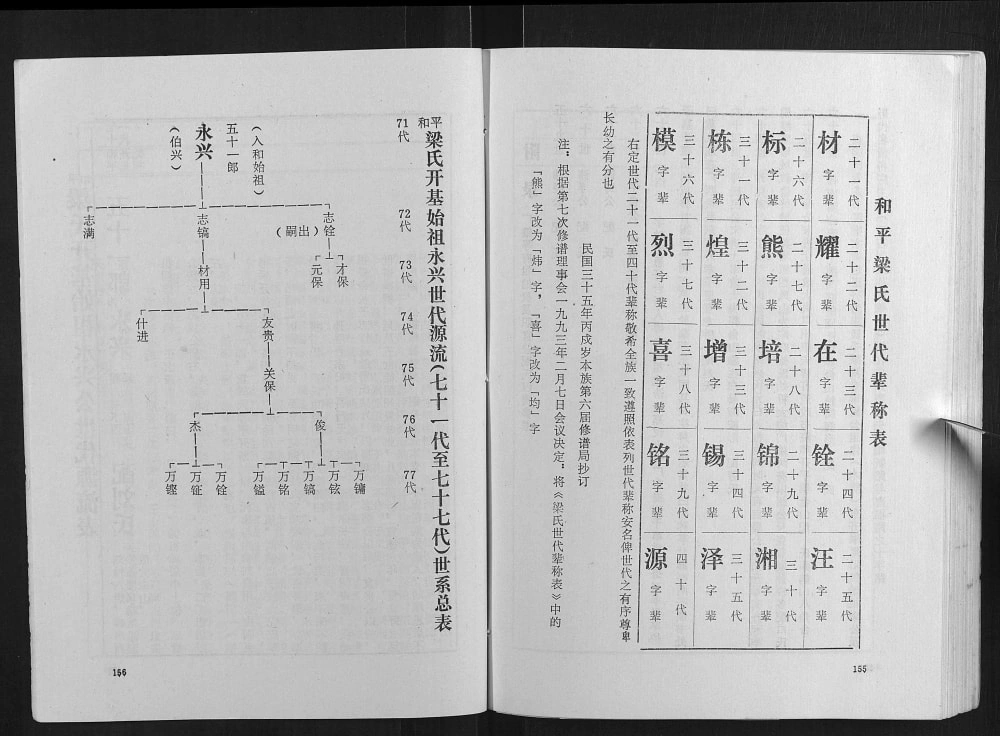 和平梁氏世代辈称表
材 字辈 二十一代
耀 字辈 二十二代
在 字辈 二十三代
铨 字辈 二十四代
汪 字辈 二十五代
标 字辈 二十六代
熊 字辈 二十七代
培 字辈 二十八代
锦 字辈 二十九代
湘 字辈 三十代
栋 字辈 三十一代
煌 字辈 三十二代
增 字辈 三十三代
锡 字辈 三十四代
泽 字辈 三十五代
模 字辈 三十六代
烈 字辈 三十七代
喜 字辈 三十八代
铭 字辈 三十九代
源 字辈 四十代
右定世代二十一代至四十代辈称敬希全族一致遵照依表列世代辈称安名俾世代之有序尊卑
长幼之有分也
民国三十五年丙戌岁本族第六届修谱局抄订
注：根据第七次修谱理事会一九九三年二月七日会议决定：将《梁氏世代辈称表》中的
「熊」字改为「炜」字，「喜」字改为「均」字
155
和平梁氏开基始祖永兴世代源流(七十一代至七十七代)世系总表
71代
72代
73代
74代
75代
76代
77代
(人和始祖)
五十一郎
永兴
(伯兴)
志铨
(嗣出)
志镐
志满
才保
元保
材用
友贵
什进
关保
俊
杰
万镛
万铉
万镐
万铭
万镒
万铨
万钲
万铿
156